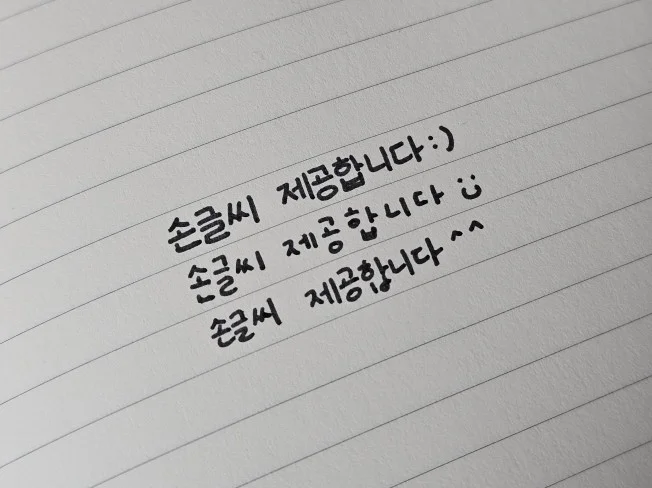 손글씨 제공합니다:)
손글씨 제공합니다 :)
손글씨 제공합니다^^